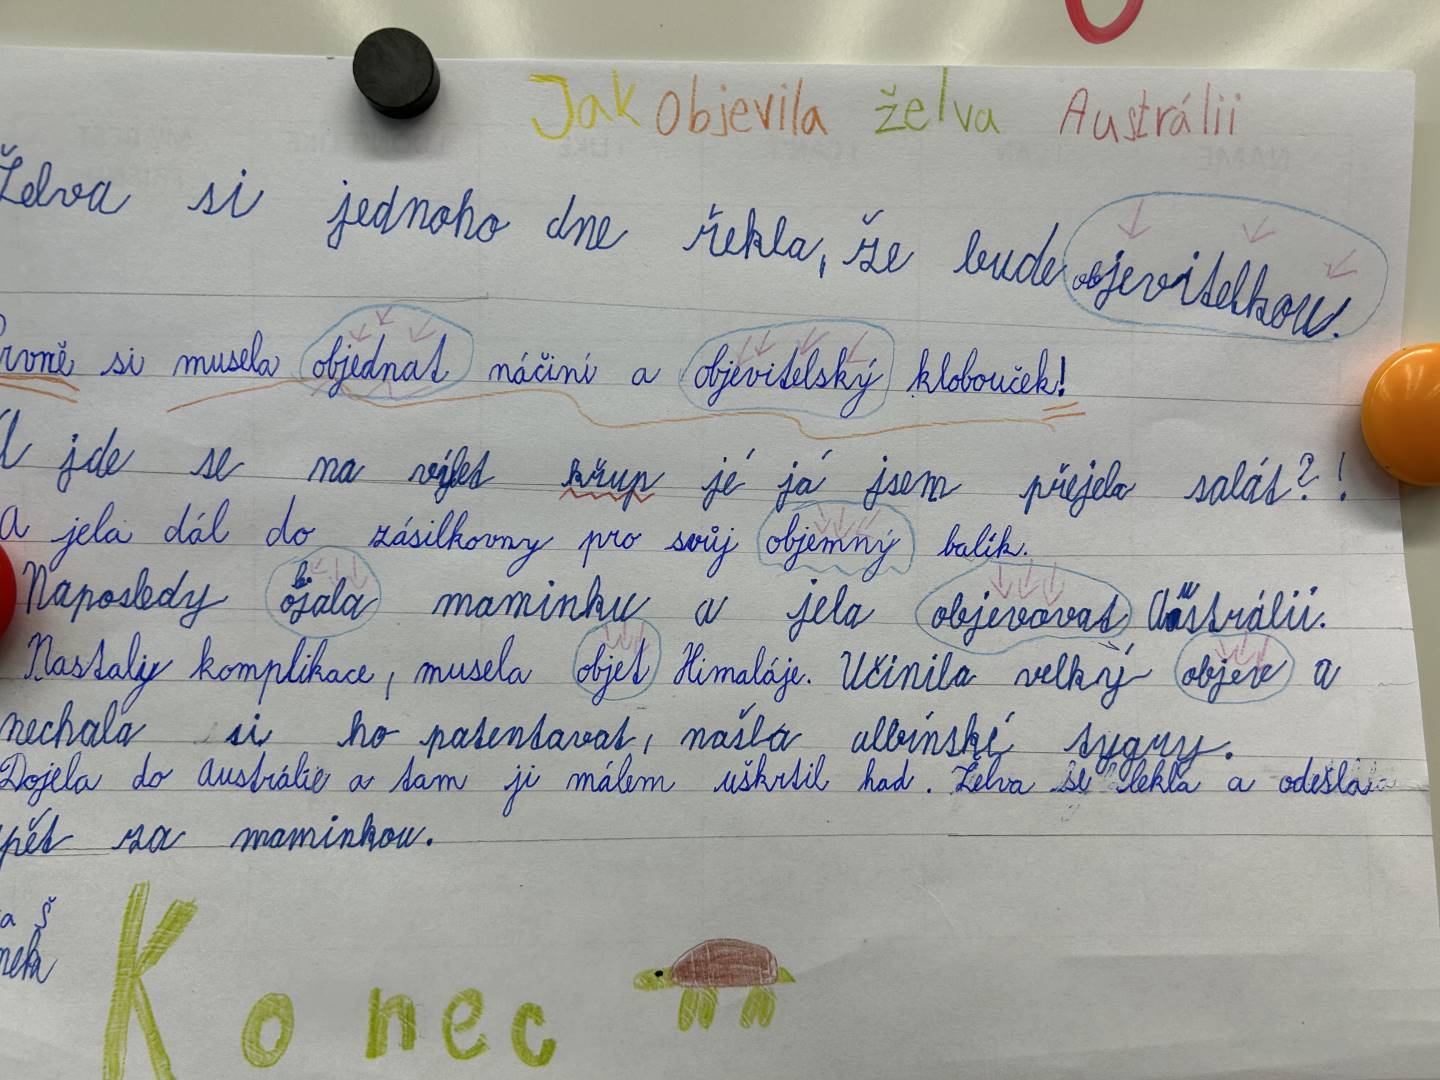 Jak objevila želva Austrálii
Želva si jednoho dne řekla, že bude objevitelkou.
Prvně si musela objednat náčiní a objevitelský klobouček!
A jde se na výlet křup jé já jsem přejela salát?!
A jela dál do zásilkovny pro svůj objemný balík.
Naposledy objala maminku a jela objevovat Austrálii.
Nastaly komplikace, musela objet Himaláje. Učinila velký objev a
nechala si ho patentovat, našla albínské tygry.
Dojela do Austrálie a tam ji málem uškrtil had. Želva se lekla a odešla
zpět za maminkou.
Konec